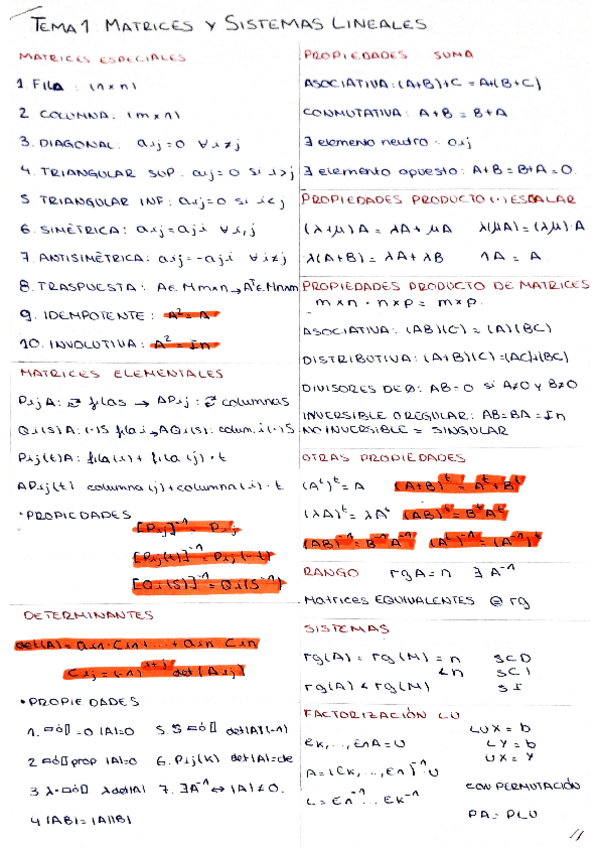 TEMA 1 MATRICES Y SISTEMAS LINEALES
MATRICES ESPECIALES
1 FILA : (1 x n)
2 COLUMNA: (m x 1)
3. DIAGONAL: aij=0 ∀i≠j
4. TRIANGULAR SUP. aij=0 si i>j
5 TRIANGULAR INF: aij=0 si i<j
6. SIMÉTRICA: aij=aji ∀i,j
7. ANTISIMÉTRICA: aij=-aji ∀i≠j
8. TRASPUESTA: A∈Mmxn → Aᵗ∈Mnxm
9. IDEMPOTENTE: A²=A
10. INVOLUTIVA: A²=In
MATRICES ELEMENTALES
PijA: ⇄ filas → APij: ⇄ columnas
Qi(s)A: (·)S fila i → AQi(s): colum. i (·)S
Pij(t)A: fila(i)+ fila(j)·t
APij(t) columna(j)+columna(i)·t
·PROPIEDADES
[Pij]⁻¹ = Pij
[Pij(t)]⁻¹ = Pij(-t)
[Qi(S)]⁻¹ = Qi(S⁻¹)
DETERMINANTES
det(A)=ai1·Ci1+...+ain Cin
Cij=(-1)ⁱ⁺ʲ det(Aij)
·PROPIEDADES
1. ▭ó▯=0 |A|=0
2 ▭ó▯prop |A|=0
3 λ·▭ó▯ λdet|A|
4 |AB|=|A||B|
5. S ▭ó▯ det|A|(-1)
6. Pij(k) det|A|=cte
7. ∃A⁻¹ ↔ |A|≠0.
PROPIEDADES SUMA
ASOCIATIVA: (A+B)+C = A+(B+C)
CONMUTATIVA: A+B = B+A
∃ elemento neutro · oij
∃ elemento opuesto: A+B=B+A=0.
PROPIEDADES PRODUCTO (·) ESCALAR
(λ+μ)A = λA + μA λ(μA)=(λμ)·A
λ(A+B) = λA + λB 1A = A
PROPIEDADES PRODUCTO DE MATRICES
m x n · n x p = m x p.
ASOCIATIVA: (AB)(C) = (A)(BC)
DISTRIBUTIVA: (A+B)(C)=(AC)+(BC)
DIVISORES DE Ø: AB=0 si A≠0 y B≠0
INVERSIBLE O REGULAR: AB=BA=In
NO INVERSIBLE = SINGULAR
OTRAS PROPIEDADES
(Aᵗ)ᵗ=A (A+B)ᵗ=Aᵗ+Bᵗ
(λA)ᵗ=λAᵗ (AB)ᵗ=BᵗAᵗ
(AB)⁻¹=B⁻¹A⁻¹ (Aᵗ)⁻¹=(A⁻¹)ᵗ
RANGO rgA=n ∃A⁻¹
MATRICES EQUIVALENTES @ rg
SISTEMAS
rg(A) = rg(M) = n SCD
<n SCI
rg(A) < rg(M) SI
FACTORIZACIÓN LU
Ek,..., E1A=U
A=(Ek,...,E1)⁻¹U
L=E1⁻¹...Ek⁻¹
LUX=b
LY=b
UX=Y
CON PERMUTACIÓN
PA=PLU